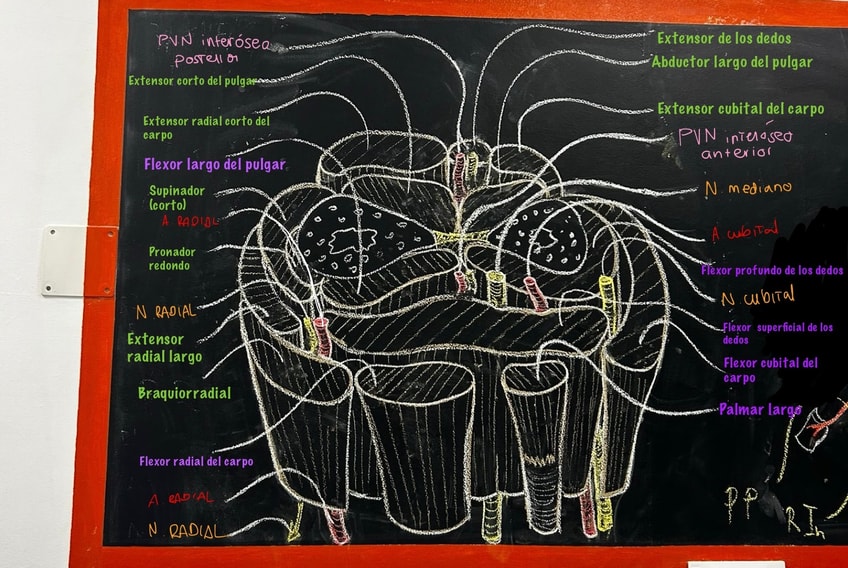 PVN interósea
posterior
Extensor corto del pulgar
Extensor radial corto del
carpo
Flexor largo del pulgar
Supinador
(corto)
A RADIAL
Pronador
redondo
N RADIAL
Extensor
radial largo
Braquiorradial
Flexor radial del carpo
A RADIAL
N RADIAL
Extensor de los dedos
Abductor largo del pulgar
Extensor cubital del carpo
PVN interósea
anterior
N mediano
A cubital
Flexor profundo de los dedos
N cubital
Flexor superficial de los
dedos
Flexor cubital del
carpo
Palmar largo
PP